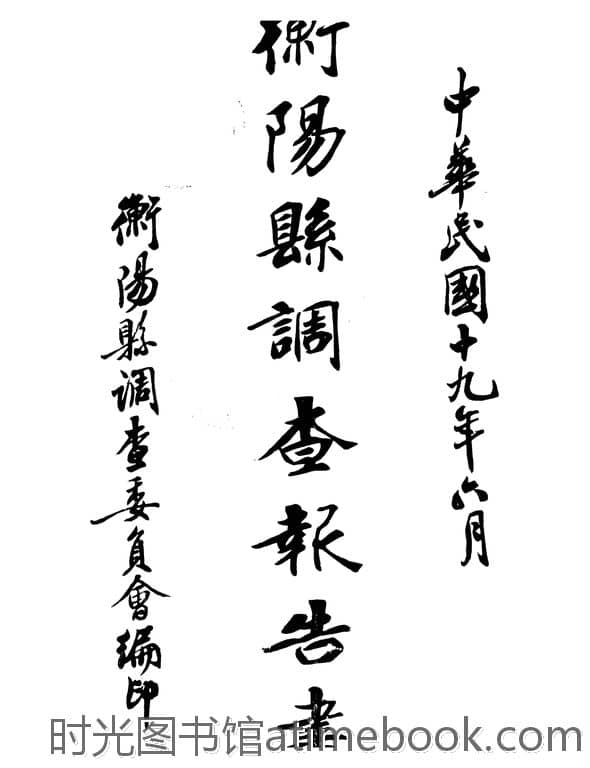 中華民國十九年六月
衡陽縣調查報告書
衡陽縣调查委員會编印
时光图书馆atimebook.com